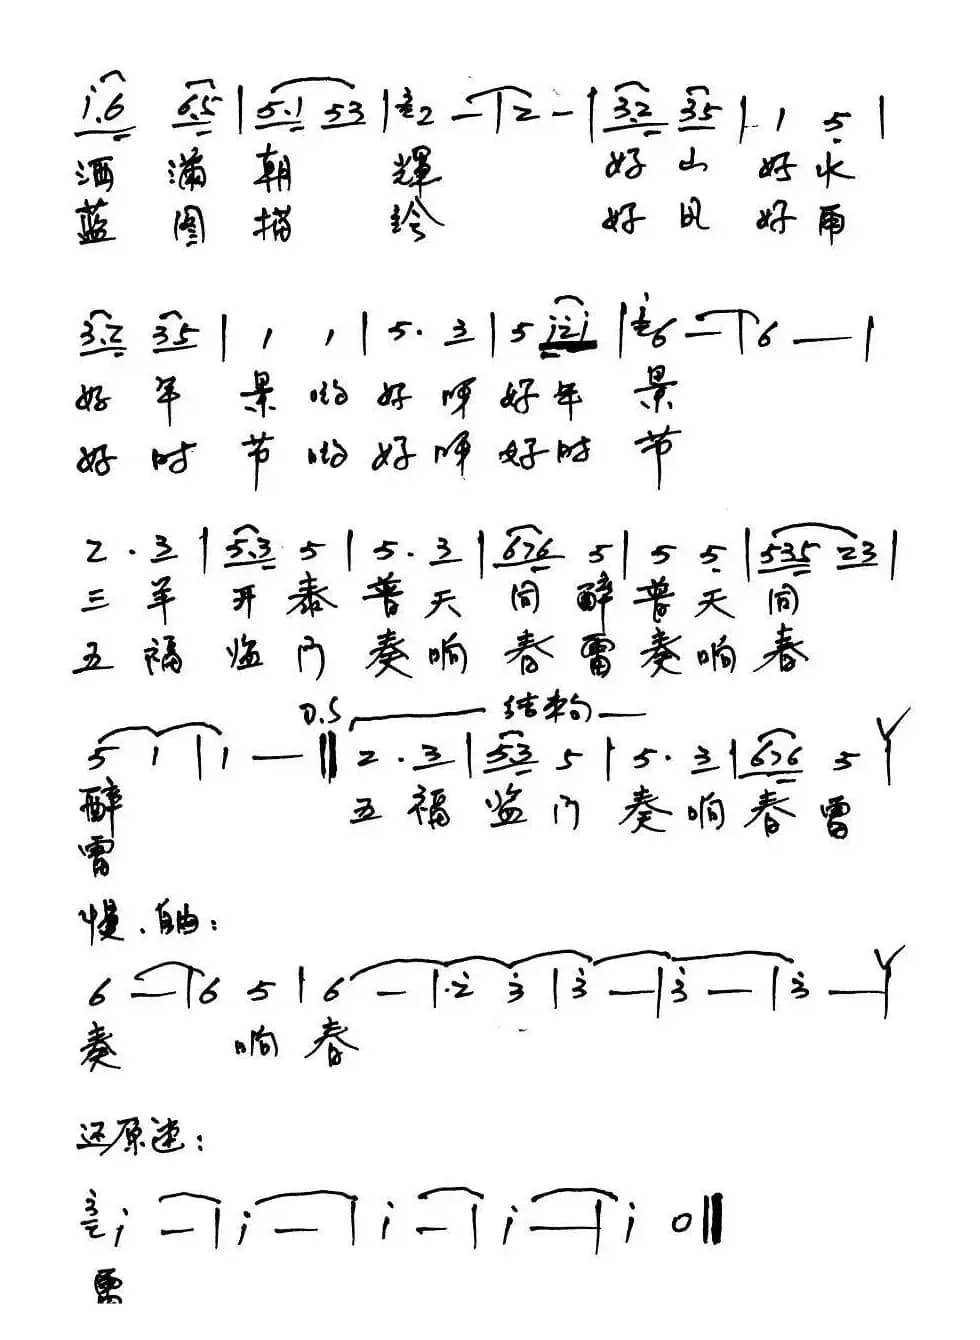 i.6 6.5 | 5.1 53 | 3 2 — | 2 — | 3.2 35 | 1 5 |
洒 满 朝 輝 好 山 好 水
蓝 图 描 绘 好 风 好 雨
3.2 35 | 1 1 | 5. 3 | 5 i2i | i 6 — | 6 — |
好 年 景 哟 好 呀 好 年 景
好 时 节 哟 好 呀 好 时 节
2. 3 | 5.3 5 | 5. 3 | 676 5 | 5 5 | 535 23 |
三 羊 开 泰 普 天 同 醉 普 天 同
五 福 临 门 奏 响 春 雷 奏 响 春
D.S 结束句
5 1 | 1 — || 2. 3 | 5.3 5 | 5. 3 | 676 5 |
醉 五 福 临 门 奏 响 春 雷
雷
慢、自由:
6 — | 6 5 | 6 — | 2 3 | 3 — | 3 — | 3 — |
奏 响 春
还原速:
3 2 i — | i — | i — | i — | i 0 ||
雷